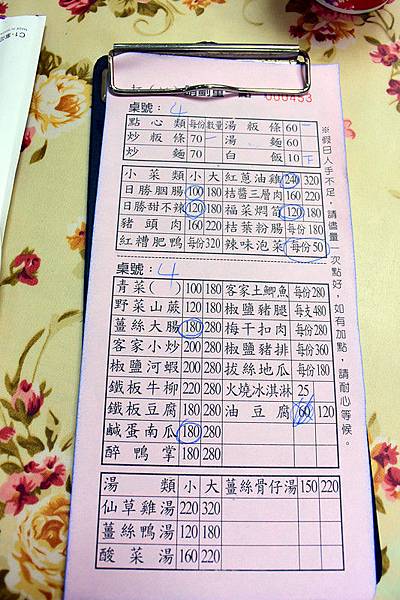 000453
桌號：4
點心類 每份 數量 湯粄條 60 一
炒粄條 70 一 湯麵 60
炒麵 70 白飯 10 下
小菜類 小 大 紅蔥油雞 240 320
日勝腘腸 100 180 桔醬三層肉 160 220
日勝甜不辣 120 180 福菜燜筍 120 180
豬頭肉 160 220 桔葉粉腸 每份 180
紅糟肥鴨 每份 320 辣味泡菜 每份 50
桌號：4
青菜( ) 100 180 客家土鯽魚 每份 280
野菜山蕨 120 180 椒鹽豬腿 每支 480
薑絲大腸 180 280 梅干扣肉 每份 280
客家小炒 200 280 椒鹽豬排 每份 360
椒鹽河蝦 200 280 拔絲地瓜 每份 180
鐵板牛柳 220 280 火燒冰淇淋 25
鐵板豆腐 180 280 油豆腐 60 120
鹹蛋南瓜 180 280
醉鴨掌 180 280
湯類 小 大 薑絲骨仔湯 150 220
仙草雞湯 220 320
薑絲鴨湯 120 180
酸菜湯 160 220
※假日人手不足，請儘量一次點好，如有加點，請耐心等候。